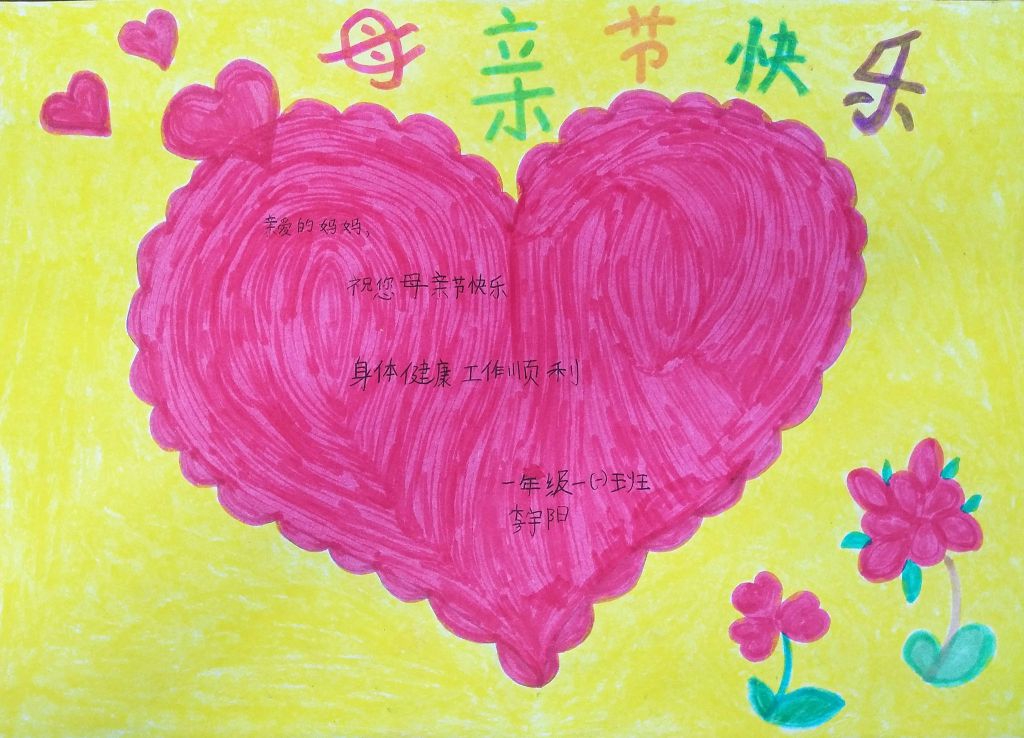 母亲节快乐
亲爱的妈妈,
祝您母亲节快乐
身体健康 工作顺利
一年级一(一)班
李宇阳